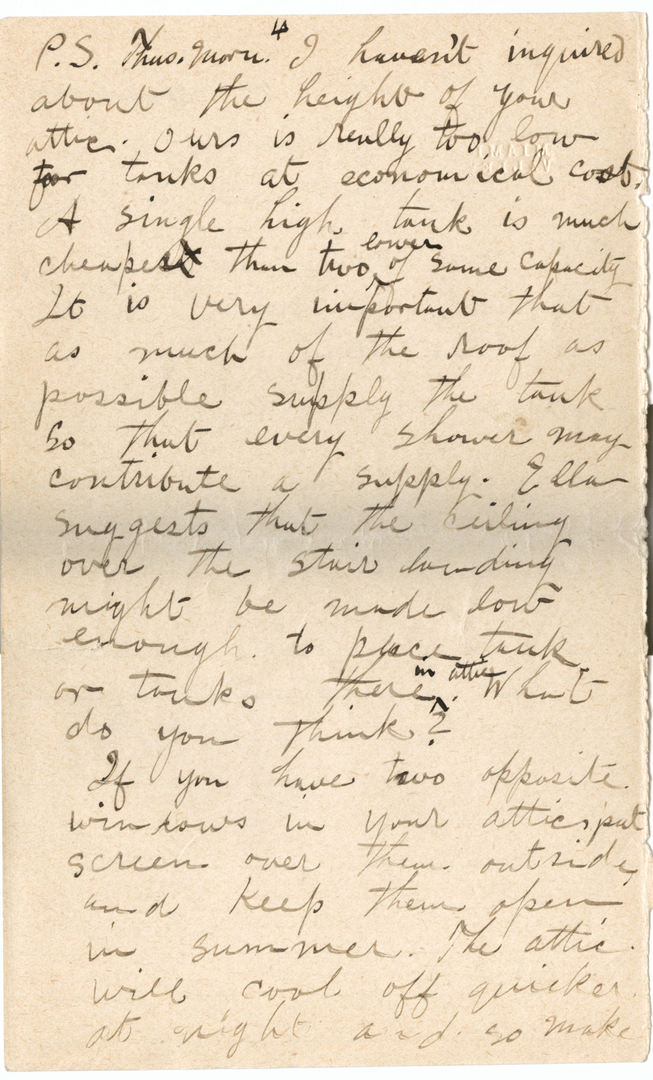 4
P.S. Thus. Morn. I haven't inquired
about the height of your
attic. Ours is really too low
for tanks at economical cost.
A single high tank is much
cheaper than two lower of same capacity
It is very important that
as much of the roof as
possible supply the tank
so that every shower may
contribute a supply. Ella
suggests that the ceiling
over the stair landing
might be made low
enough to place tank
or tanks there in attic. What
do you think?
If you have two opposite
windows in your attic, put
screen over them outside,
and keep them open
in summer. The attic
will cool off quicker
at night and so make